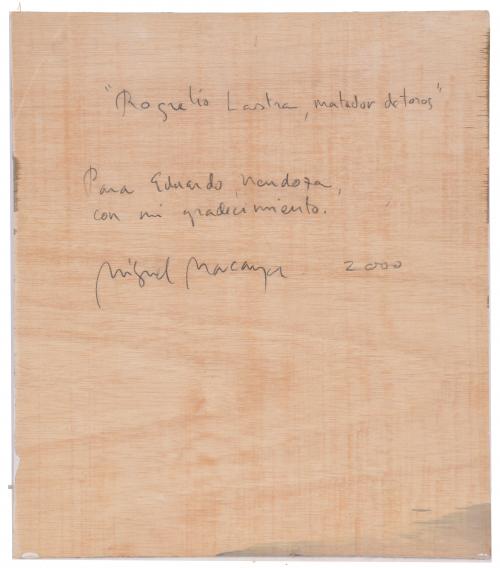 "Rogelio Lastra, matador de toros"
Para Eduardo Mendoza,
con mi gradecimiento.
Miguel Macaya 2000